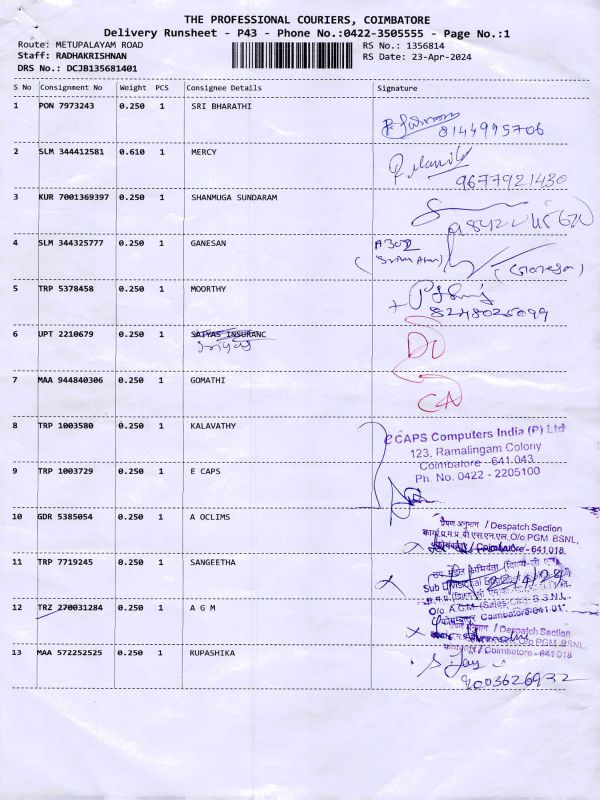 THE PROFESSIONAL COURIERS, COIMBATORE
Delivery Runsheet - P43 - Phone No.:0422-3505555 - Page No.:1
Route: METUPALAYAM ROAD RS No.: 1356814
Staff: RADHAKRISHNAN RS Date: 23-Apr-2024
DRS No.: DCJB135681401
S No Consignment No Weight PCS Consignee Details Signature
1 PON 7973243 0.250 1 SRI BHARATHI
8144995706
2 SLM 344412581 0.610 1 MERCY
9677921430
3 KUR 7001369397 0.250 1 SHANMUGA SUNDARAM
4 SLM 344325777 0.250 1 GANESAN A302
5 TRP 5378458 0.250 1 MOORTHY
8248026099
6 UPT 2210679 0.250 1 SATYAS INSURANC
7 MAA 944840306 0.250 1 GOMATHI
CA
8 TRP 1003580 0.250 1 KALAVATHY
CAPS Computers India (P) Ltd
123, Ramalingam Colony
Coimbatore - 641 043
Ph. No. 0422 - 2205100
9 TRP 1003729 0.250 1 E CAPS
10 GDR 5385054 0.250 1 A OCLIMS
प्रेषण अनुभाग / Despatch Section
O/o PGM BSNL,
Coimbatore - 641 018
11 TRP 7719245 0.250 1 SANGEETHA
12 TRZ 270031284 0.250 1 A G M
O/o A.G.M (Sales-CM) B.S.N.L.
Coimbatore-641 01
अनुभाग / Despatch Section
O/o PGM BSNL,
Coimbatore - 641 018
13 MAA 572252525 0.250 1 RUPASHIKA
9003626932